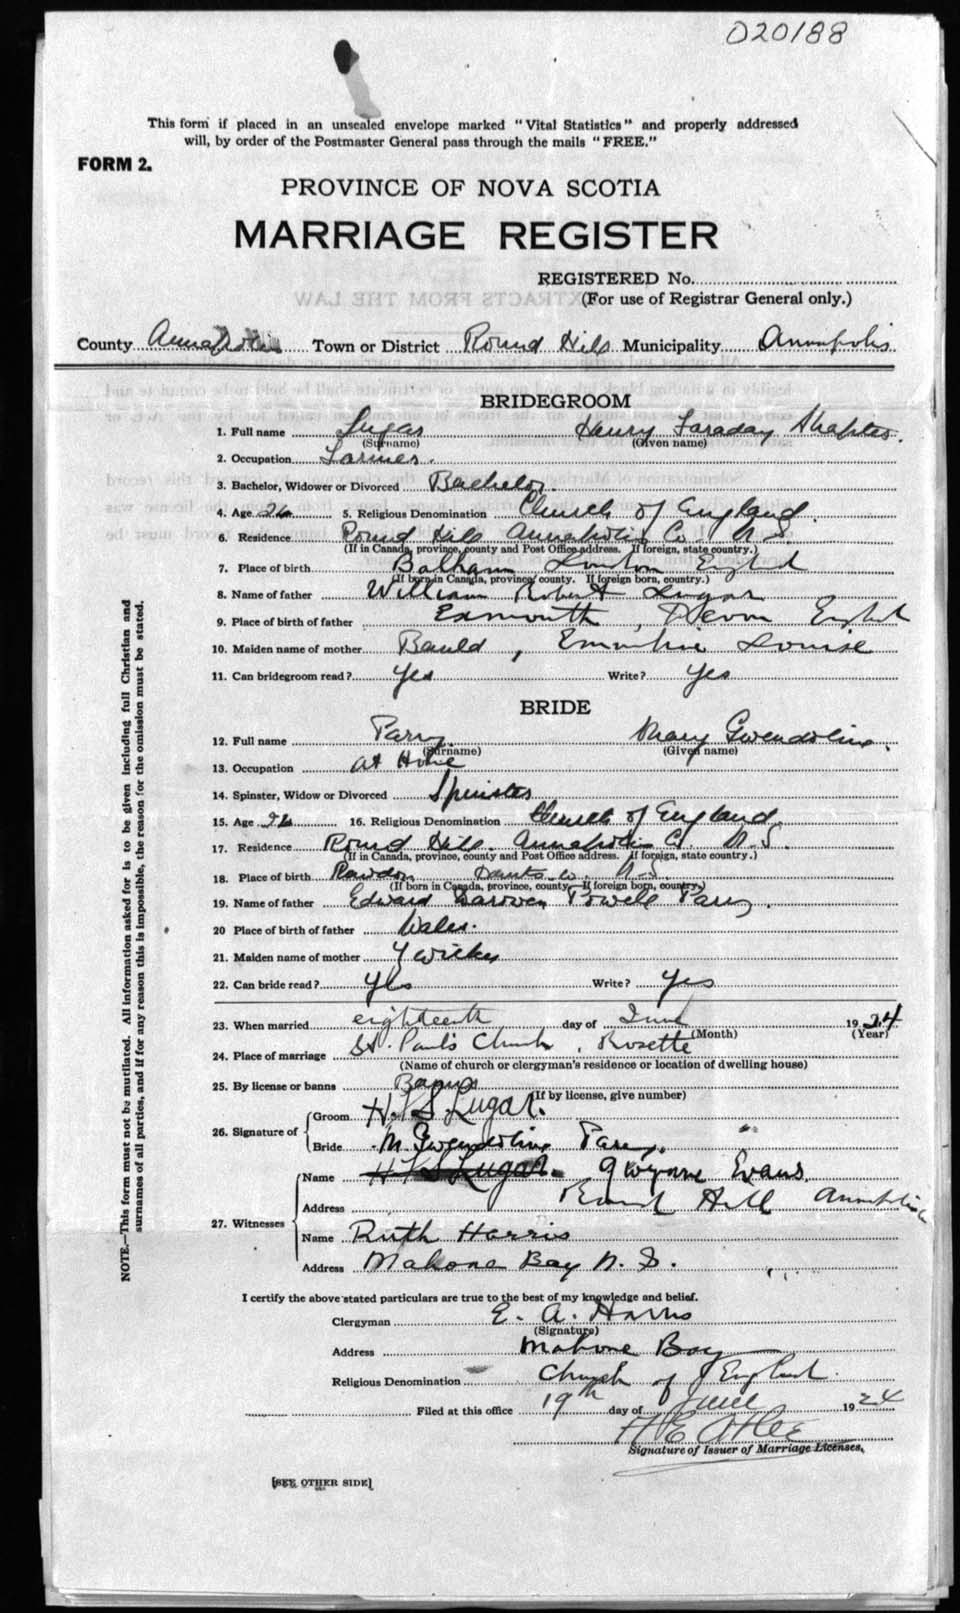 020188
This form if placed in an unsealed envelope marked "Vital Statistics" and properly addressed
will, by order of the Postmaster General pass through the mails "FREE."
FORM 2.
PROVINCE OF NOVA SCOTIA
MARRIAGE REGISTER
REGISTERED No.
(For use of Registrar General only.)
County Annapolis Town or District Round Hill Municipality Annapolis
BRIDEGROOM
1. Full name Lugar Henry Faraday Sharples.
(Surname) (Given name)
2. Occupation Farmer.
3. Bachelor, Widower or Divorced Bachelor.
4. Age 26 5. Religious Denomination Church of England.
6. Residence Round Hill Annapolis Co. N S
(If in Canada, province, county and Post Office address. If foreign, state country.)
7. Place of birth Balham London England
(If born in Canada, province, county. If foreign born, country.)
8. Name of father William Robert Lugar
9. Place of birth of father Exmouth, Devon England
10. Maiden name of mother Bauld, Louise
11. Can bridegroom read? Yes Write? Yes
BRIDE
12. Full name Parry Mary Gwendoline.
(Surname) (Given name)
13. Occupation at Home
14. Spinster, Widow or Divorced Spinster
15. Age 26 16. Religious Denomination Church of England.
17. Residence Round Hill. Annapolis Co. N. S.
(If in Canada, province, county and Post Office address. If foreign, state country.)
18. Place of birth Rawdon Hants Co. N. S.
(If born in Canada, province, county—If foreign born, country.)
19. Name of father Edward Powell Parry.
20 Place of birth of father Wales.
21. Maiden name of mother
22. Can bride read? Yes Write? Yes
23. When married eighteenth day of June 1924
(Month) (Year)
24. Place of marriage St. Paul's Church, Rosette
(Name of church or clergyman's residence or location of dwelling house)
25. By license or banns Banns
(If by license, give number)
26. Signature of Groom H. F. S. Lugar.
Bride M. Gwendoline Parry.
27. Witnesses Name H F S Lugar. Gwynne Evans
Address Round Hill Annapolis
Name Ruth Harris
Address Mahone Bay N. S.
I certify the above stated particulars are true to the best of my knowledge and belief.
Clergyman E. A. Harris
(Signature)
Address Mahone Bay
Religious Denomination Church of England.
Filed at this office 19th day of June 1924
Signature of Issuer of Marriage Licenses.
[SEE OTHER SIDE]
NOTE.—This form must not be mutilated. All information asked for is to be given including full Christian and
surnames of all parties, and if for any reason this is impossible, the reason for the omission must be stated.